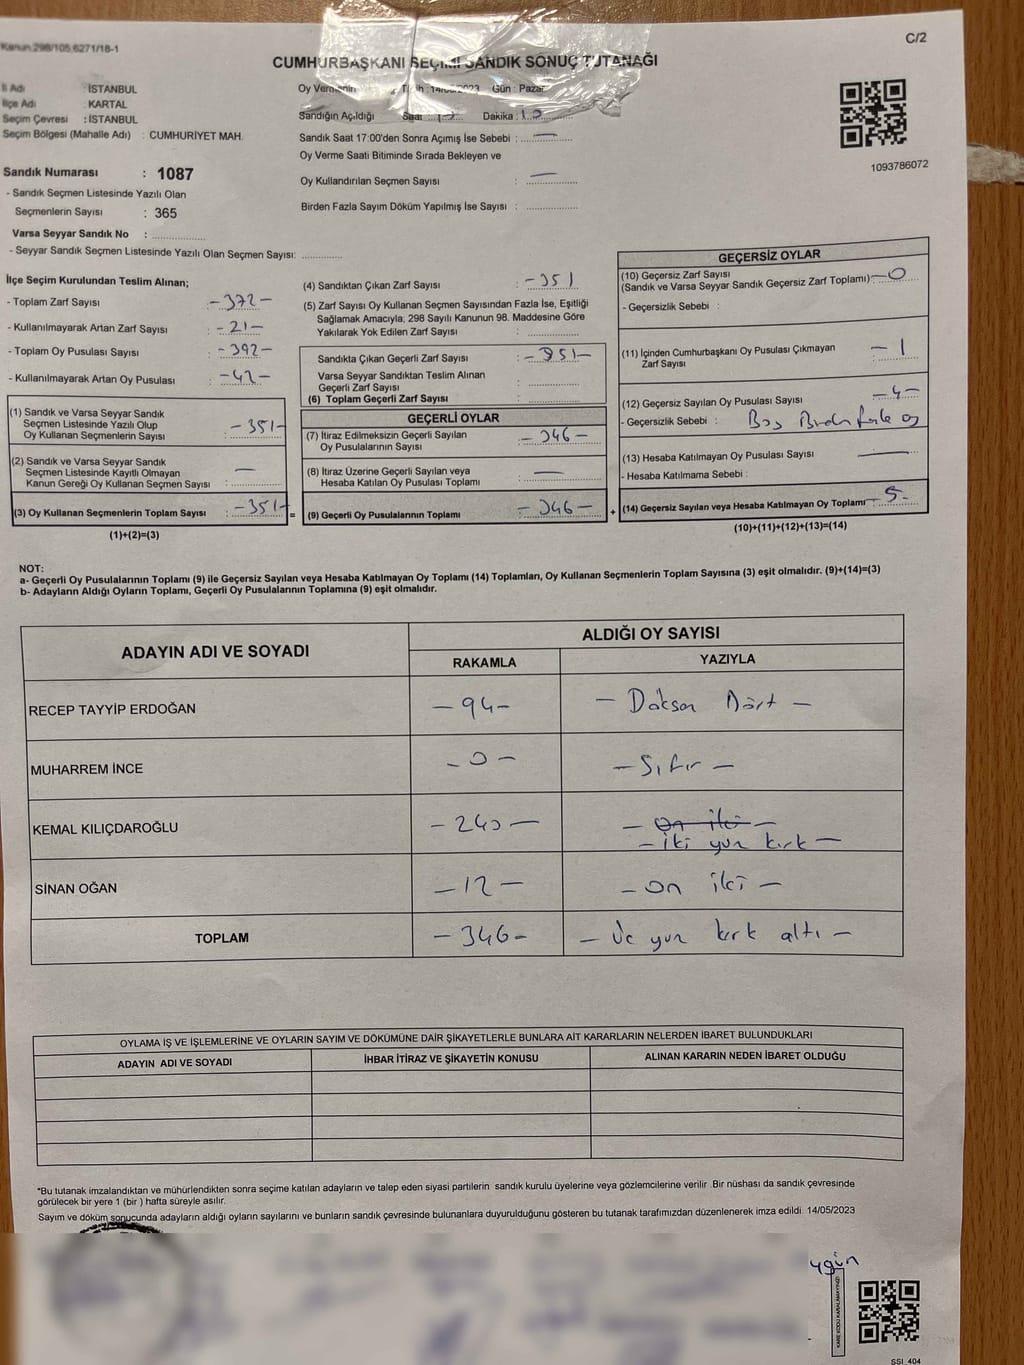 Kanun.298/105,6271/18-1
C/2
CUMHURBAŞKANI SEÇİMİ SANDIK SONUÇ TUTANAĞI
İl Adı : İSTANBUL
İlçe Adı : KARTAL
Seçim Çevresi : İSTANBUL
Seçim Bölgesi (Mahalle Adı) : CUMHURİYET MAH.
Sandık Numarası : 1087
- Sandık Seçmen Listesinde Yazılı Olan
Seçmenlerin Sayısı : 365
Varsa Seyyar Sandık No : ..................
- Seyyar Sandık Seçmen Listesinde Yazılı Olan Seçmen Sayısı: ..............
Gün : Pazar
Sandığın Açıldığı Saat : Dakika :
Sandık Saat 17:00'den Sonra Açımış İse Sebebi : —
Oy Verme Saati Bitiminde Sırada Bekleyen ve
Oy Kullandırılan Seçmen Sayısı : —
Birden Fazla Sayım Döküm Yapılmış İse Sayısı : ..................
1093786072
İlçe Seçim Kurulundan Teslim Alınan;
- Toplam Zarf Sayısı : -372-
- Kullanılmayarak Artan Zarf Sayısı : -21-
- Toplam Oy Pusulası Sayısı : -392-
- Kullanılmayarak Artan Oy Pusulası : -42-
(1) Sandık ve Varsa Seyyar Sandık
Seçmen Listesinde Yazılı Olup
Oy Kullanan Seçmenlerin Sayısı : -351-
(2) Sandık ve Varsa Seyyar Sandık
Seçmen Listesinde Kayıtlı Olmayan
Kanun Gereği Oy Kullanan Seçmen Sayısı : —
(3) Oy Kullanan Seçmenlerin Toplam Sayısı : -351- =
(1)+(2)=(3)
(4) Sandıktan Çıkan Zarf Sayısı : -351
(5) Zarf Sayısı Oy Kullanan Seçmen Sayısından Fazla İse, Eşitliği
Sağlamak Amacıyla; 298 Sayılı Kanunun 98. Maddesine Göre
Yakılarak Yok Edilen Zarf Sayısı :
Sandıkta Çıkan Geçerli Zarf Sayısı : -351-
Varsa Seyyar Sandıktan Teslim Alınan
Geçerli Zarf Sayısı :
(6) Toplam Geçerli Zarf Sayısı :
GEÇERLİ OYLAR
(7) İtiraz Edilmeksizin Geçerli Sayılan
Oy Pusulalarının Sayısı : -346-
(8) İtiraz Üzerine Geçerli Sayılan veya
Hesaba Katılan Oy Pusulası Toplamı : —
(9) Geçerli Oy Pusulalarının Toplamı : -346- +
GEÇERSİZ OYLAR
(10) Geçersiz Zarf Sayısı
(Sandık ve Varsa Seyyar Sandık Geçersiz Zarf Toplamı): -0
- Geçersizlik Sebebi :
(11) İçinden Cumhurbaşkanı Oy Pusulası Çıkmayan
Zarf Sayısı : -1
(12) Geçersiz Sayılan Oy Pusulası Sayısı : -4-
- Geçersizlik Sebebi : Boş Birden fazla oy
(13) Hesaba Katılmayan Oy Pusulası Sayısı : —
- Hesaba Katılmama Sebebi :
(14) Geçersiz Sayılan veya Hesaba Katılmayan Oy Toplamı -5-
(10)+(11)+(12)+(13)=(14)
NOT:
a- Geçerli Oy Pusulalarının Toplamı (9) ile Geçersiz Sayılan veya Hesaba Katılmayan Oy Toplamı (14) Toplamları, Oy Kullanan Seçmenlerin Toplam Sayısına (3) eşit olmalıdır. (9)+(14)=(3)
b- Adayların Aldığı Oyların Toplamı, Geçerli Oy Pusulalarının Toplamına (9) eşit olmalıdır.
ADAYIN ADI VE SOYADI
ALDIĞI OY SAYISI
RAKAMLA YAZIYLA
RECEP TAYYİP ERDOĞAN -94- - Doksan Dört -
MUHARREM İNCE -0- - Sıfır -
KEMAL KILIÇDAROĞLU -240- - On iki -
- iki yüz kırk -
SİNAN OĞAN -12- - on iki -
TOPLAM -346- - Üç yüz kırk altı -
OYLAMA İŞ VE İŞLEMLERİNE VE OYLARIN SAYIM VE DÖKÜMÜNE DAİR ŞİKAYETLERLE BUNLARA AİT KARARLARIN NELERDEN İBARET BULUNDUKLARI
ADAYIN ADI VE SOYADI İHBAR İTİRAZ VE ŞİKAYETİN KONUSU ALINAN KARARIN NEDEN İBARET OLDUĞU
*Bu tutanak imzalandıktan ve mühürlendikten sonra seçime katılan adayların ve talep eden siyasi partilerin sandık kurulu üyelerine veya gözlemcilerine verilir .Bir nüshası da sandık çevresinde
görülecek bir yere 1 (bir ) hafta süreyle asılır.
Sayım ve döküm sonucunda adayların aldığı oyların sayılarını ve bunların sandık çevresinde bulunanlara duyurulduğunu gösteren bu tutanak tarafımızdan düzenlenerek imza edildi. 14/05/2023
ygün
KARE KODU KARALAMAYINIZ!
SSI_404